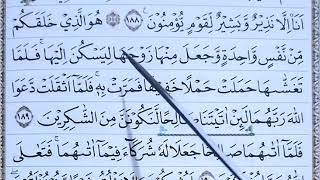 اَنَا اِلَّا نَذِيْرٌ وَّبَشِيْرٌ لِّقَوْمٍ يُّؤْمِنُوْنَ ﴿۱۸۸﴾ هُوَ الَّذِيْ خَلَقَكُمْ
مِّنْ نَّفْسٍ وَّاحِدَةٍ وَّجَعَلَ مِنْهَا زَوْجَهَا لِيَسْكُنَ اِلَيْهَا ۚ فَلَمَّا
تَغَشّٰىهَا حَمَلَتْ حَمْلًا خَفِيْفًا فَمَرَّتْ بِهٖ ۚ فَلَمَّآ اَثْقَلَتْ دَّعَوَا
اللّٰهَ رَبَّهُمَا لَىِٕنْ اٰتَيْتَنَا صَالِحًا لَّنَكُوْنَنَّ مِنَ الشّٰكِرِيْنَ ﴿۱۸۹﴾
فَلَمَّآ اٰتٰىهُمَا صَالِحًا جَعَلَا لَهٗ شُرَكَآءَ فِيْمَآ اٰتٰىهُمَا ۚ فَتَعٰلَى